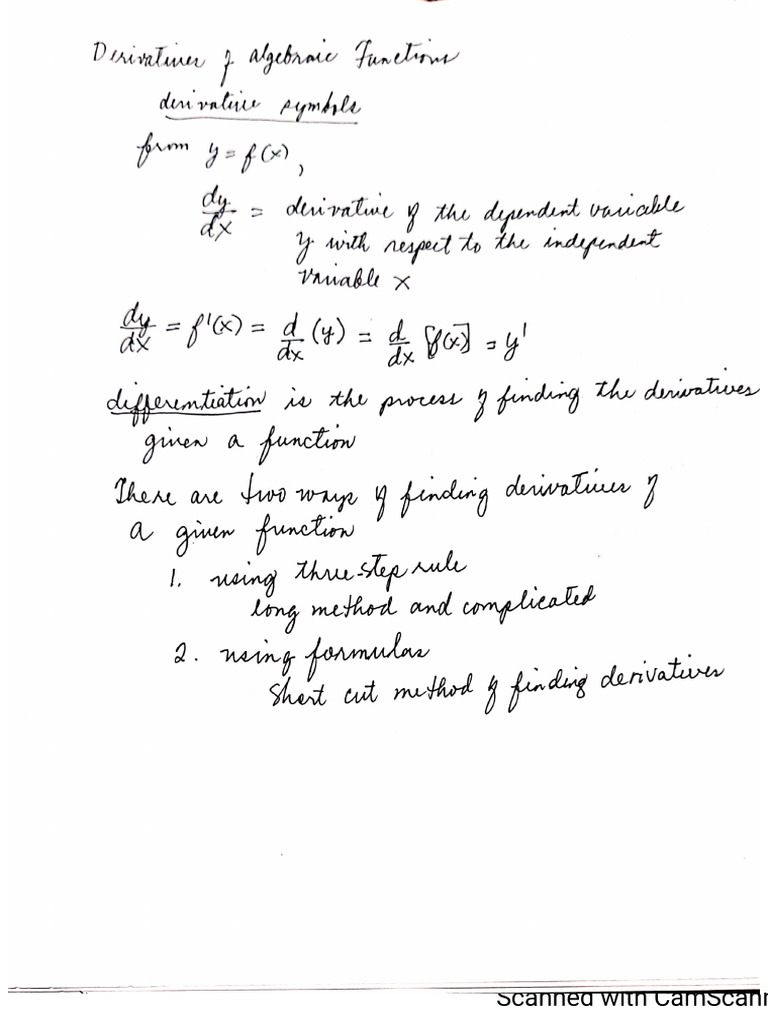 Derivatives of algebraic Functions
derivative symbols
from y = f(x),
dy/dx = derivative of the dependent variable
y with respect to the independent
variable x
dy/dx = f'(x) = d/dx (y) = d/dx [f(x)] = y'
differentiation is the process of finding the derivatives
given a function
There are two ways of finding derivatives of
a given function
1. using three-step rule
long method and complicated
2. using formulas
Short cut method of finding derivatives
Scanned with CamScann